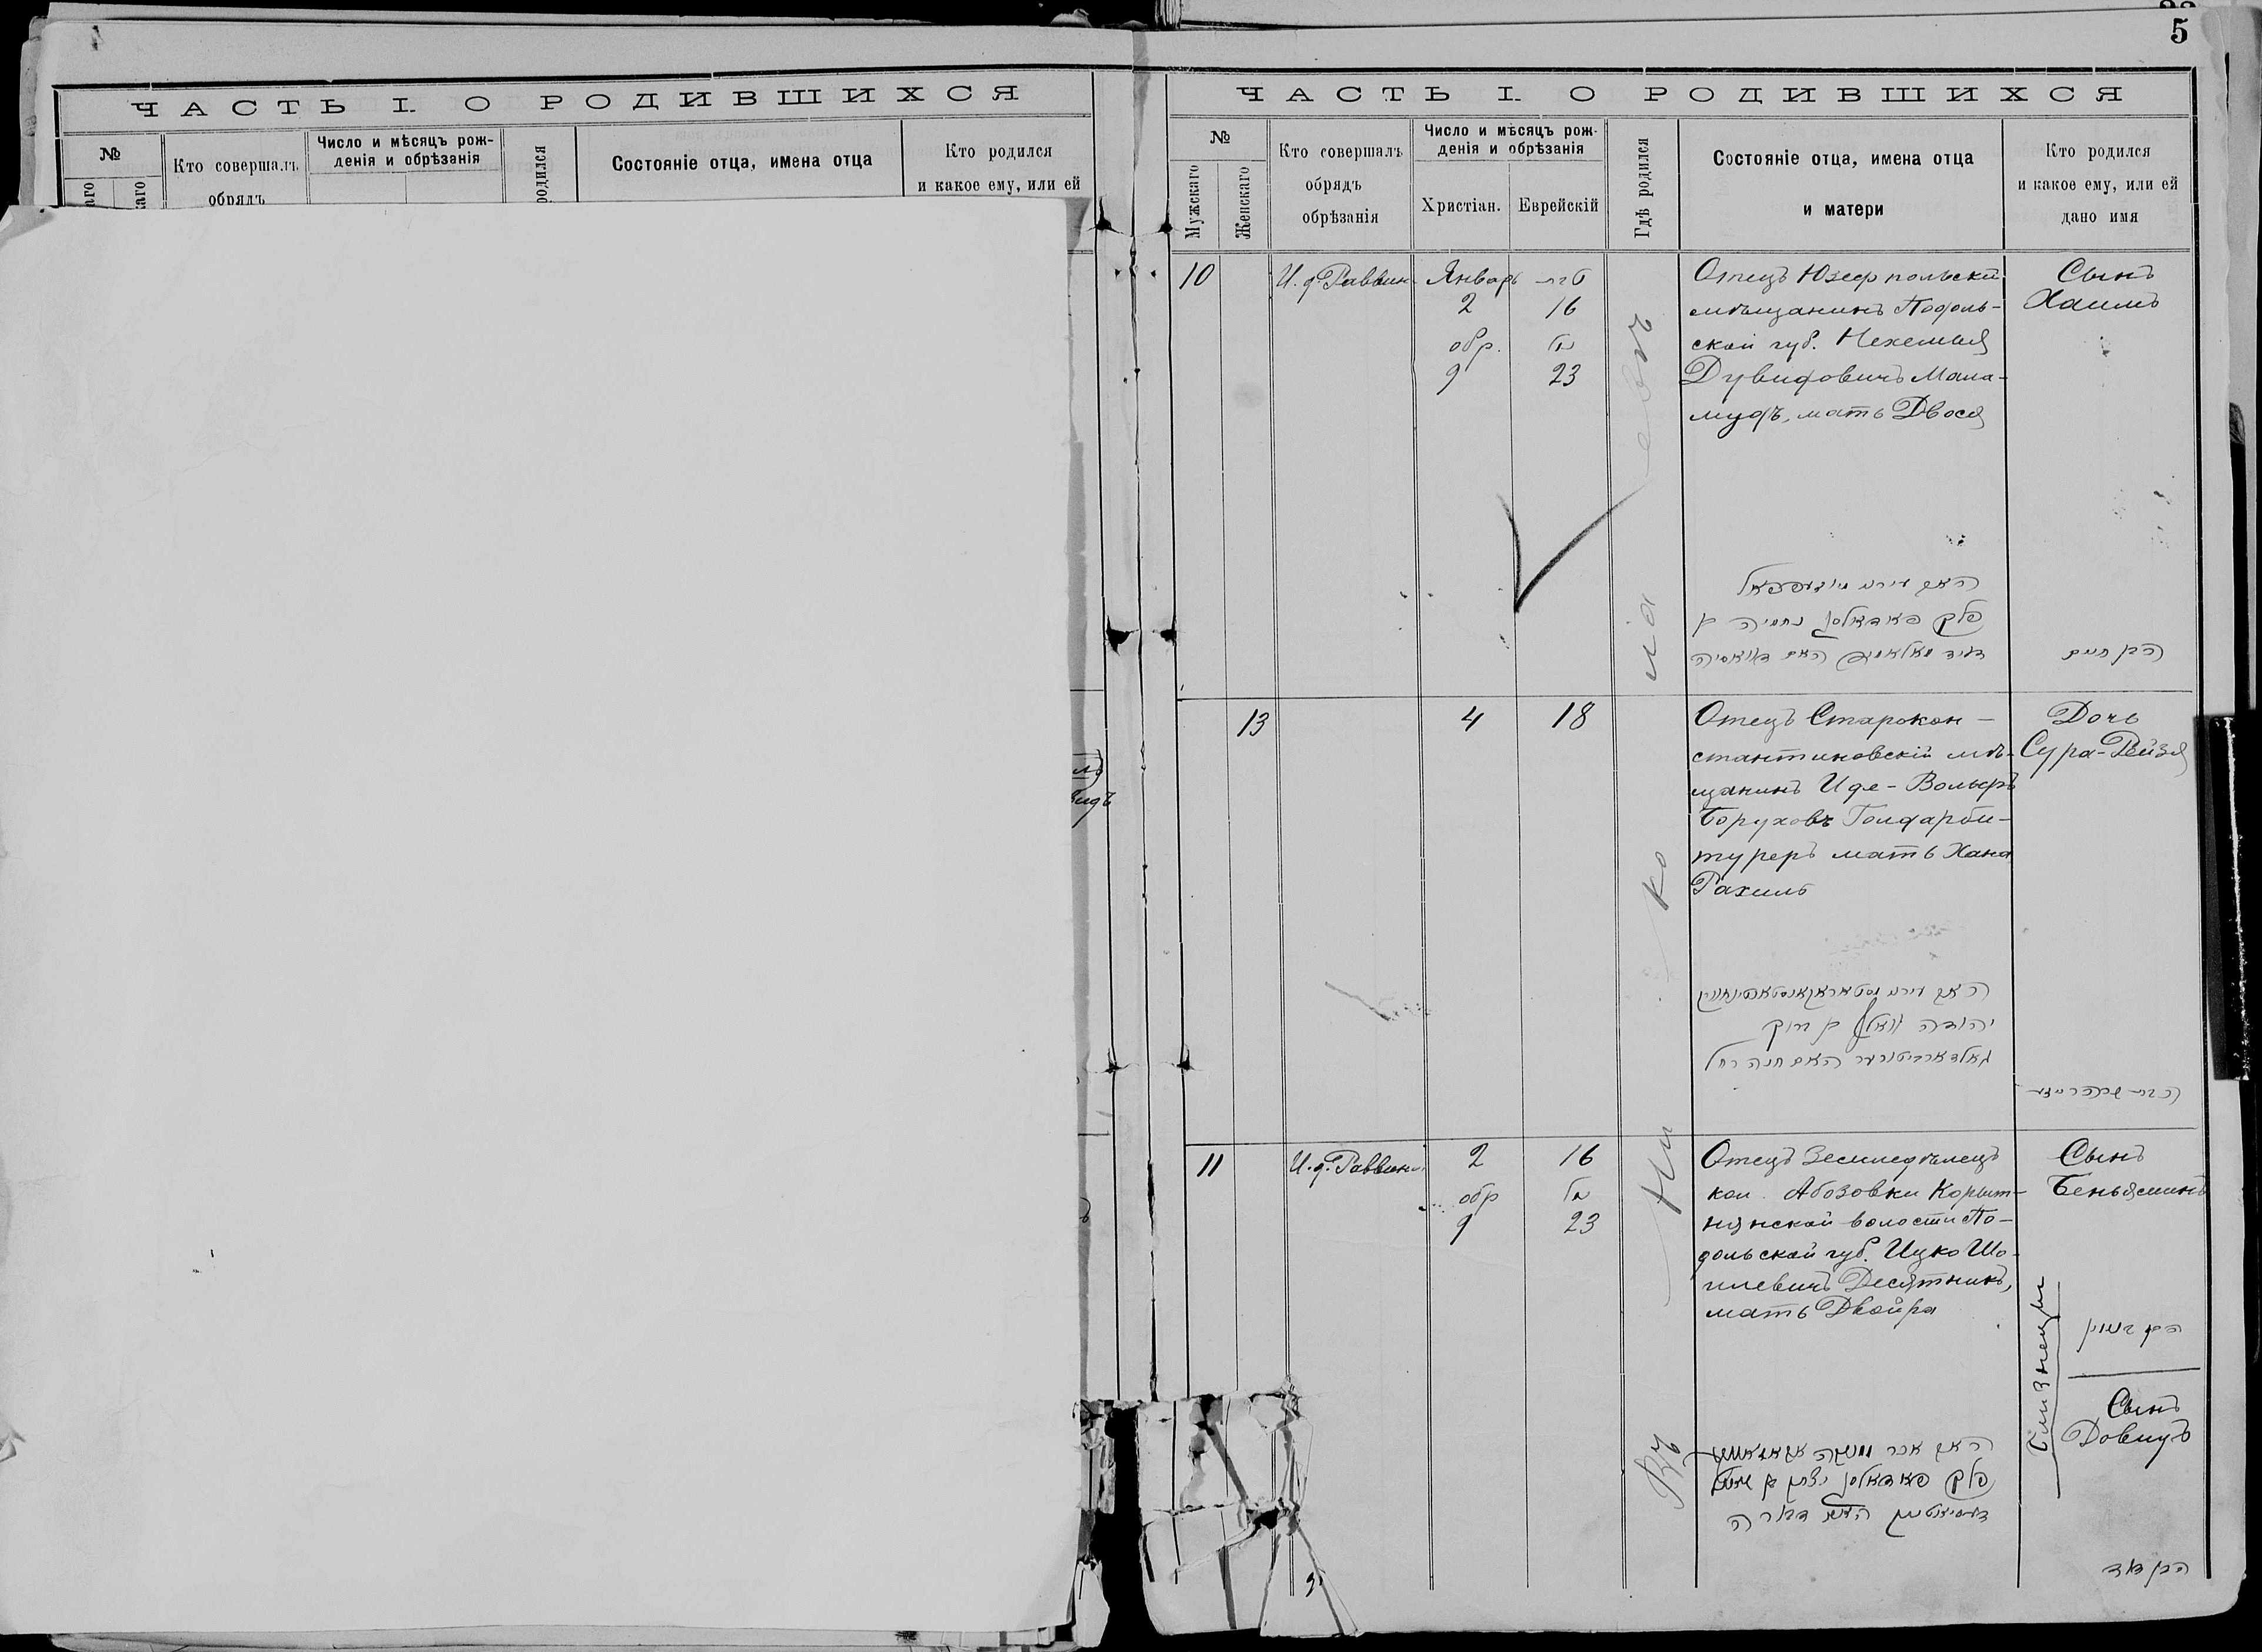 5
ЧАСТЬ I. О РОДИВШИХСЯ
№
Кто совершалъ
обрядъ
Число и мѣсяцъ рож-
денія и обрѣзанія
родился
Состояніе отца, имена отца
Кто родился
и какое ему, или ей
ЧАСТЬ I. О РОДИВШИХСЯ
№
Мужскаго
Женскаго
Кто совершалъ
обрядъ
обрѣзанія
Число и мѣсяцъ рож-
денія и обрѣзанія
Христіан.
Еврейскій
Гдѣ родился
Состояніе отца, имена отца
и матери
Кто родился
и какое ему, или ей
дано имя
Въ Николаевѣ
10
И. д. Раввин
Январь
2
16
обр.
9
23
Отецъ Юзефпольскій
мѣщанинъ Подоль-
ской губ. Нехемья
Дувидовичъ Мала-
мудъ, мать Двося
Сынъ
Хаимъ
פלך פאדאלסק נחמיה בן
הבן חיים
13
4
18
Отецъ Старокон-
стантиновскій мѣ-
щанинъ Иде-Вольфъ
Боруховъ Голдарби-
туреръ мать Хана
Рахиль
Дочь
Сура-Рейзя
יהודה וואלף בן ברוך
האם חנה רחל
11
И. д. Раввин
2
16
обр
9
23
Отецъ Земледѣлецъ
кол. Абозовки Корыт-
нянской волости По-
дольской губ. Ицко Шо-
илевичъ Десятникъ,
мать Двойра
Сынъ
Беньяминъ
Близнецы
הבן בנימין
Сынъ
Довидъ
הבן דוד